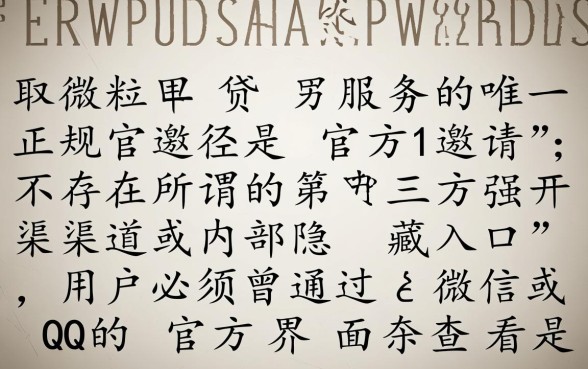 取微粒 贷 服务的唯一
正规官邀径是 官方1邀请”;
不存在所谓的第 三方强开
渠渠道或内部隐 藏入口”
，用户必须曾通过 微信或
QQ的 官方界 面 查看是